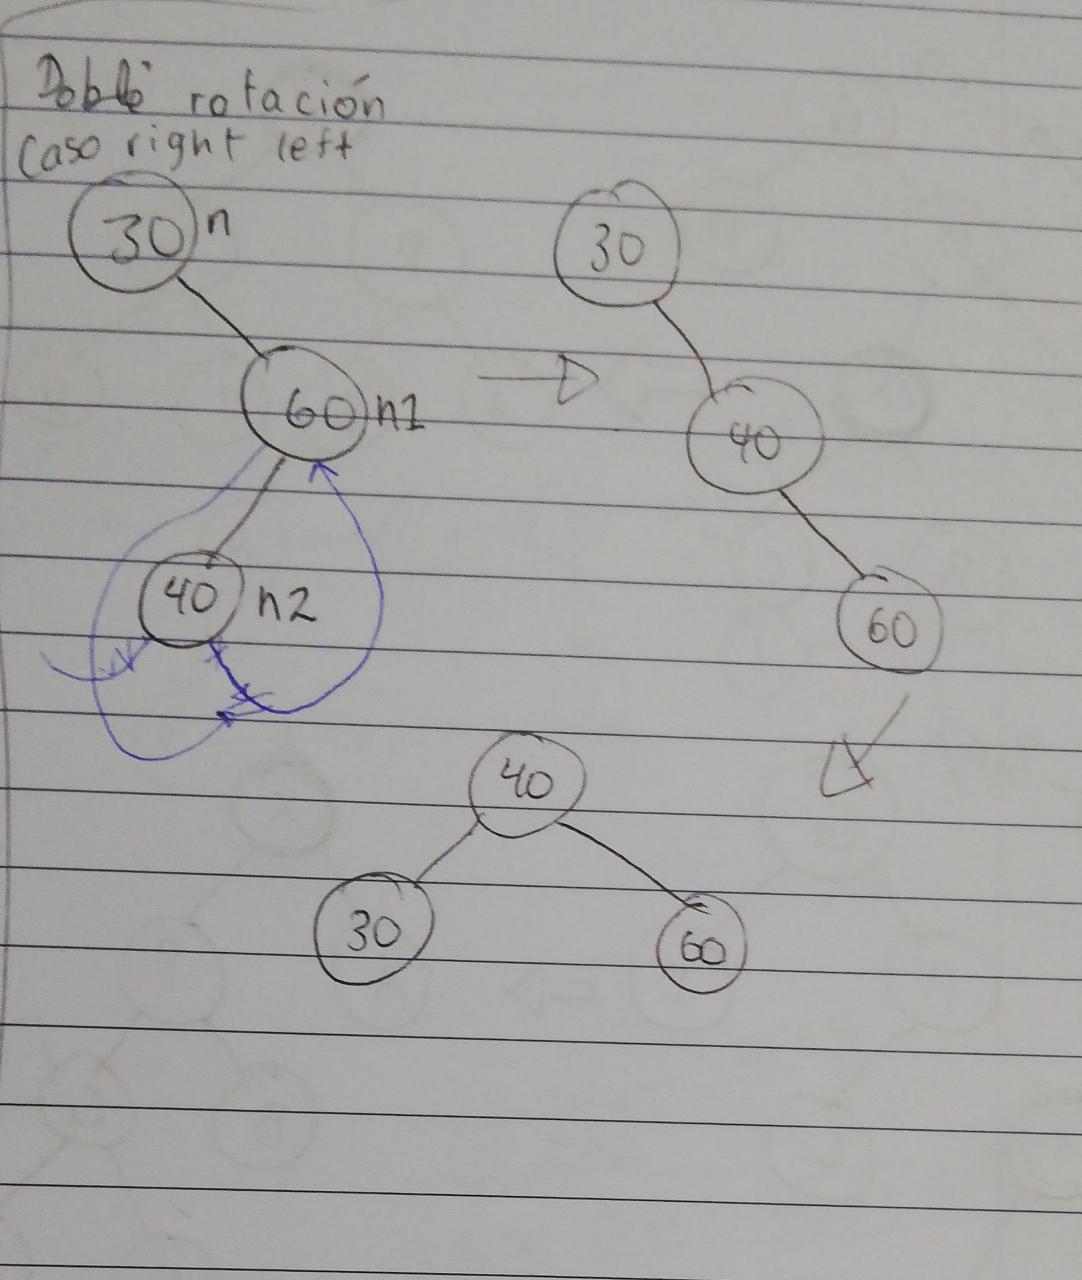 Doble rotación
Caso right left
30 n
30
60 n1
40
40 n2
60
40
30
60